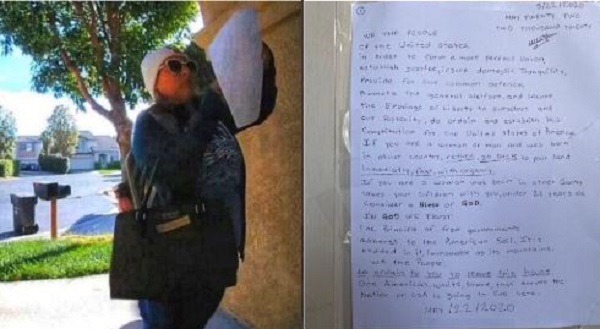 ①
5/22/2020
MAY TWENTY TWO
TWO THOUSAND TWENTY
WE THE PEOPLE
of the United States
in order to form a more perfect Union,
establish justice, insure domestic Tranquility,
Provide for the common defence
Promote the general welfare, and secure
the Blessings of Liberty to ourselves and
our Posterity, do ordain and establish this
Constitution for the United States of America
If you are a woman or man and was born
in other country, return, go back to your land
immediatly, fast, with urgency.
If you are a woman was born in other country
takes your children with you, under 21 years old
consider a Bless of GOD.
IN GOD WE TRUST
The Principle of free governments
adheres to the American Soil. It is
bedded in it, immovable as its mountains.
we the People
to you to leave this house
One American, white, brave, that serves the
Nation or USA is going to live here.
MAY/22/2020